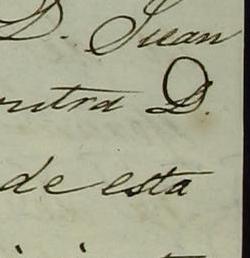 D. Juan
ntra D.
de esta